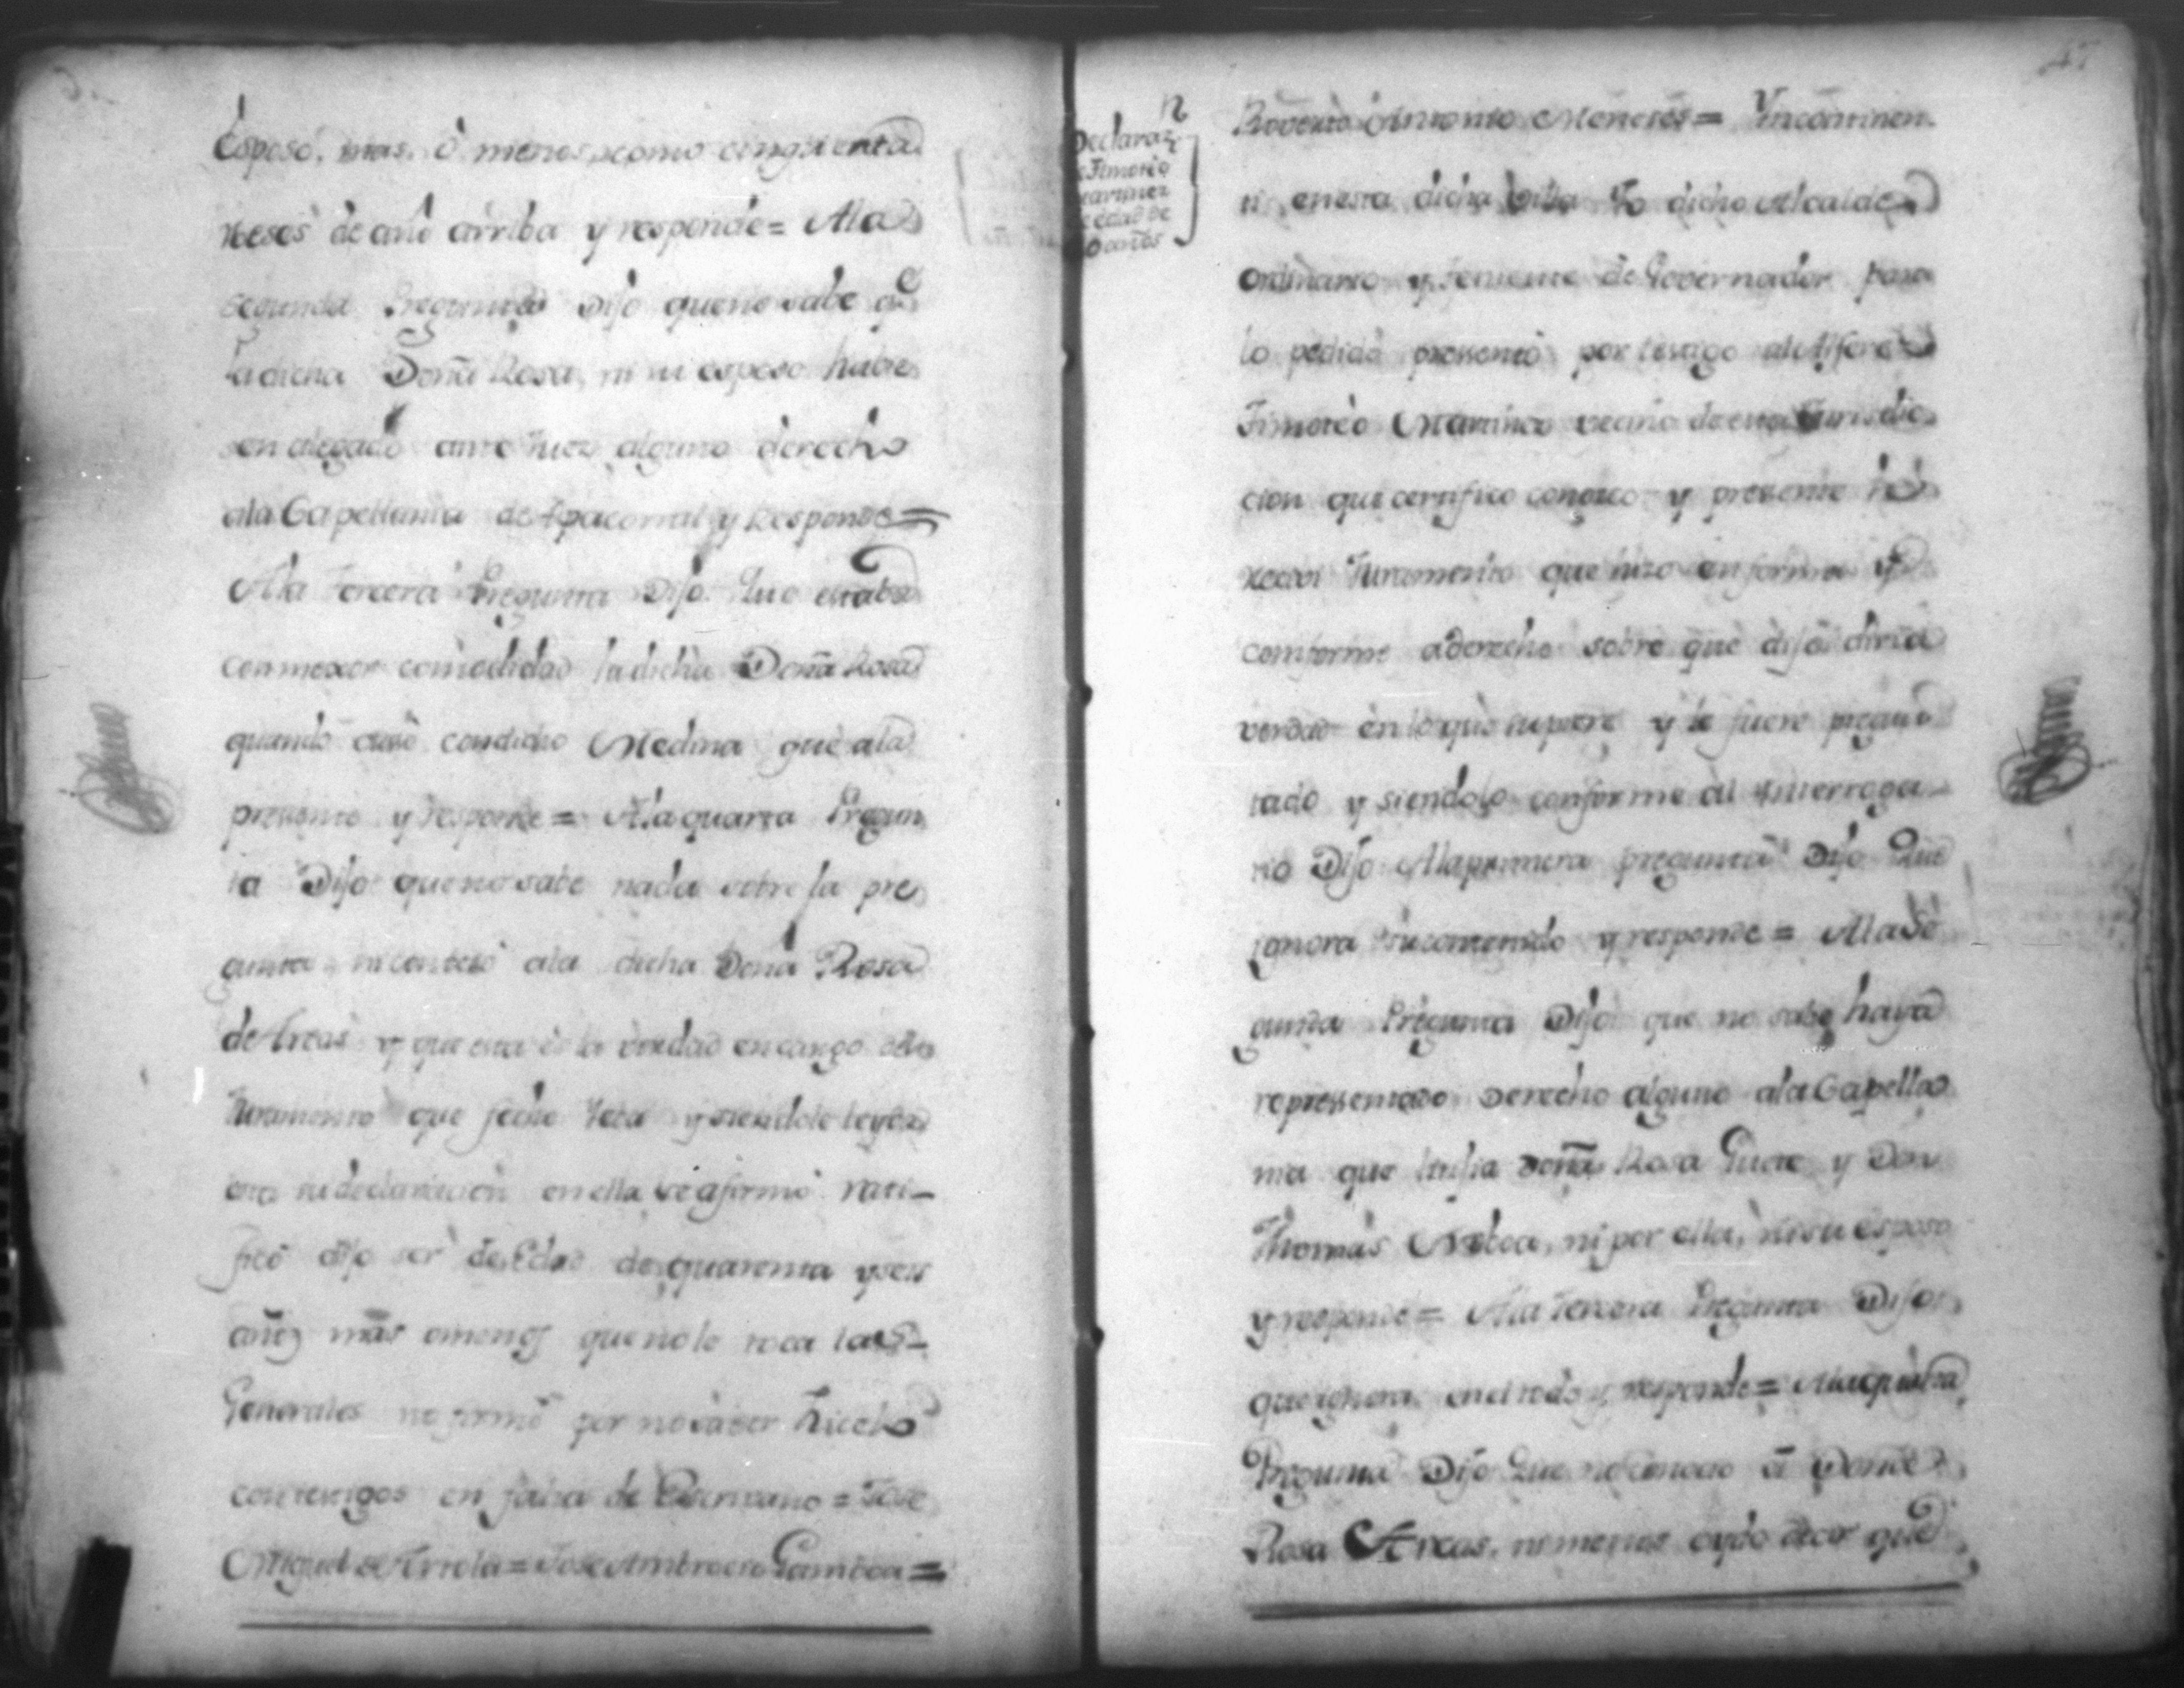 Esposo, mas, ó menos, como cinquenta
reses de año arriba y responde = Ala
segunda Pregunta Dijo que no sabe q.e
la dicha Doña Rosa, ni su esposo hubie
sen alegado ante Juez alguno derecho
ala Capellania de Apacorral y Responde =
Ala tercera Pregunta Dijo Que estaba
con mexor comodidad la dicha Doña Rosa
quando casó con dicho Medina que ala
presente y responde = Ala quarta Pregun
ta Dijo que no sabe nada sobre la pre
gunta ni conoció ala dicha Doña Rosa
de Arcas y que esta es la verdad en cargo del
Juramento que fecho lleba y siendole leyda
esta su declaracion en ella se afirmó rati-
ficó dijo ser de Edad de quarenta y seis
años mas omenos que no le toca las
Generales no firmó por no saber hicelo
con testigos en falta de Escrivano = Jose
Miguel de Arrola = Jose Ambrocio Gamboa =
47
Declaraz.n
de Timoteo
Martinez
de edad de
años
Roverto Antonio Meneses = Yncontinen
ti enesta dicha Villa Yo dicho Alcalde
ordinario y Teniente de Governador para
lo pedido presentó por testigo al Alferes
Timoteo Martinez vecino de esta Jurisdic
cion que certifico conozco y presente le
recivi Juramento que hizo en forma y
conforme aderecho sobre que dijo diria
verdad en lo que supiere y le fuere pregun
tado y siendolo conforme al Ynterroga
rio Dijo Ala primera pregunta Dijo Que
ignora su contenido y responde = Ala Se
gunda Pregunta Dijo que no sabe haya
representado Derecho alguno ala Capella
nia que litifia Doña Rosa y Don
Thomas, ni por ella, ni su esposo
y responde = Ala tercera Pregunta Dijo
que ignora en el todo y responde = Ala quarta
Pregunta Dijo Que no conocio á Doña
Rosa Arcas, ni menos oydo decir que